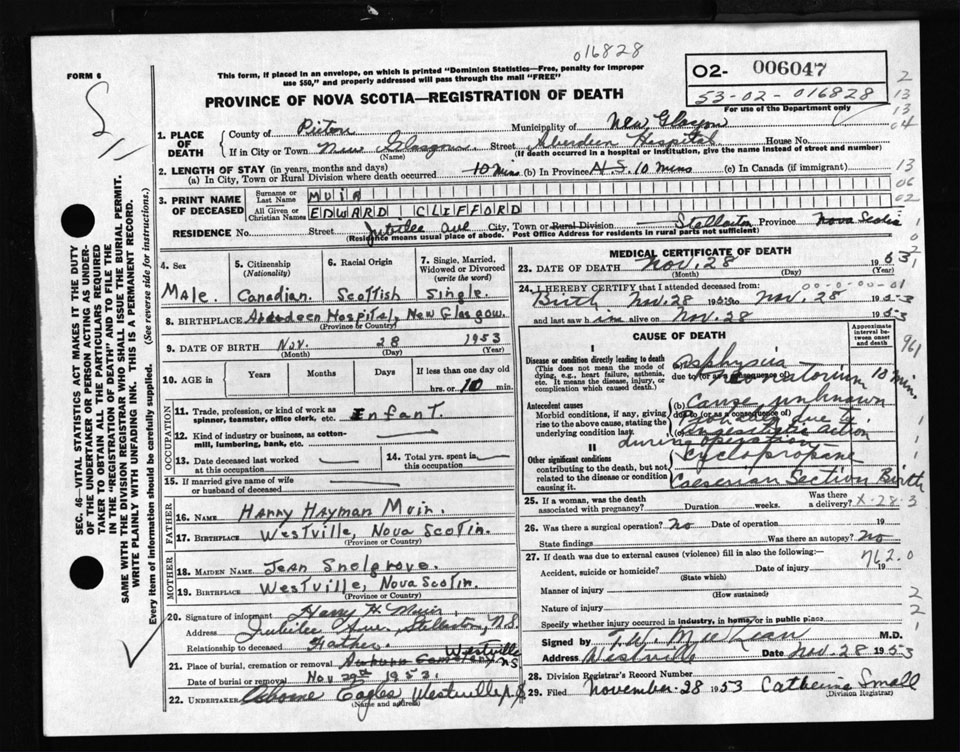 016828
FORM 6
This form, if placed in an envelope, on which is printed "Dominion Statistics—Free, penalty for improper
use $50," and properly addressed will pass through the mail "FREE"
O2- 006047
53-02-016828
For use of the Department only
PROVINCE OF NOVA SCOTIA—REGISTRATION OF DEATH
2
13
13
04
13
06
02
1. PLACE OF DEATH
County of Pictou Municipality of New Glasgow
If in City or Town New Glasgow Street Aberdeen Hospital House No.
(Name) (If death occurred in a hospital or institution, give the name instead of street and number)
2. LENGTH OF STAY (in years, months and days)
(a) In City, Town or Rural Division where death occurred 10 mins (b) In Province N.S. 10 mins (c) In Canada (if immigrant)
3. PRINT NAME OF DECEASED
Surname or Last Name MUIR
All Given or Christian Names EDWARD CLIFFORD
RESIDENCE No. Street Jubilee Ave City, Town or Rural Division Stellarton Province Nova Scotia
(Residence means usual place of abode. Post Office Address for residents in rural parts not sufficient)
4. Sex Male.
5. Citizenship (Nationality) Canadian.
6. Racial Origin Scottish
7. Single, Married, Widowed or Divorced (write the word) Single.
8. BIRTHPLACE Aberdeen Hospital, New Glasgow.
(Province or Country)
9. DATE OF BIRTH Nov. 28 1953
(Month) (Day) (Year)
10. AGE in Years Months Days If less than one day old
hrs. or 10 min.
OCCUPATION
11. Trade, profession, or kind of work as spinner, teamster, office clerk, etc. Infant.
12. Kind of industry or business, as cotton-mill, lumbering, bank, etc.
13. Date deceased last worked at this occupation
14. Total yrs. spent in this occupation
15. If married give name of wife or husband of deceased
FATHER
16. NAME Harry Hayman Muir
17. BIRTHPLACE Westville, Nova Scotia.
(Province or Country)
MOTHER
18. MAIDEN NAME Jean Snelgrove.
19. BIRTHPLACE Westville, Nova Scotia.
(Province or Country)
20. Signature of informant Harry H. Muir,
Address Jubilee Ave., Stellarton, N.S.
Relationship to deceased Father.
21. Place of burial, cremation or removal Westville N.S
Date of burial or removal Nov 29th 1953.
22. UNDERTAKER Osborne Eagles Westville N.S
(Name and address)
MEDICAL CERTIFICATE OF DEATH
23. DATE OF DEATH Nov. 28 1953
(Month) (Day) (Year)
24. I HEREBY CERTIFY that I attended deceased from: 00-0-00-01
Birth Nov. 28 1953 to Nov. 28 1953
and last saw him alive on Nov. 28 1953
CAUSE OF DEATH
Approximate interval between onset and death
961
I
Disease or condition directly leading to death
(This does not mean the mode of dying, e.g., heart failure, asthenia, etc. It means the disease, injury, or complication which caused death.)
(a) Asphyxia neonatorum 10 min.
due to (or as a consequence of)
Antecedent causes
Morbid conditions, if any, giving rise to the above cause, stating the underlying condition last.
(b) Cause unknown
due to (or as a consequence of)
Probably due to
(c)
during operation
II
Other significant conditions
contributing to the death, but not related to the disease or condition causing it.
Cyclopropane
Caeserian Section Birth
25. If a woman, was the death associated with pregnancy? Duration weeks. Was there a delivery? X-28-3
26. Was there a surgical operation? No Date of operation 19
State findings Was there an autopsy? No
27. If death was due to external causes (violence) fill in also the following:— 762.0
Accident, suicide or homicide? Date of injury 19
(State which)
Manner of injury
(How sustained)
Nature of injury
Specify whether injury occurred in industry, in home, or in public place
Signed by M.D.
Address Westville Date Nov. 28 1953
28. Division Registrar's Record Number
29. Filed November 28 1953 Catherine Small
(Division Registrar)
SEC. 46—VITAL STATISTICS ACT MAKES IT THE DUTY
OF THE UNDERTAKER OR PERSON ACTING AS UNDER-
TAKER TO OBTAIN ALL THE PARTICULARS REQUIRED
IN THE "REGISTRATION OF DEATH" AND TO FILE THE
SAME WITH THE DIVISION REGISTRAR WHO SHALL ISSUE THE BURIAL PERMIT.
WRITE PLAINLY WITH UNFADING INK. THIS IS A PERMANENT RECORD.
Every item of information should be carefully supplied. (See reverse side for instructions.)